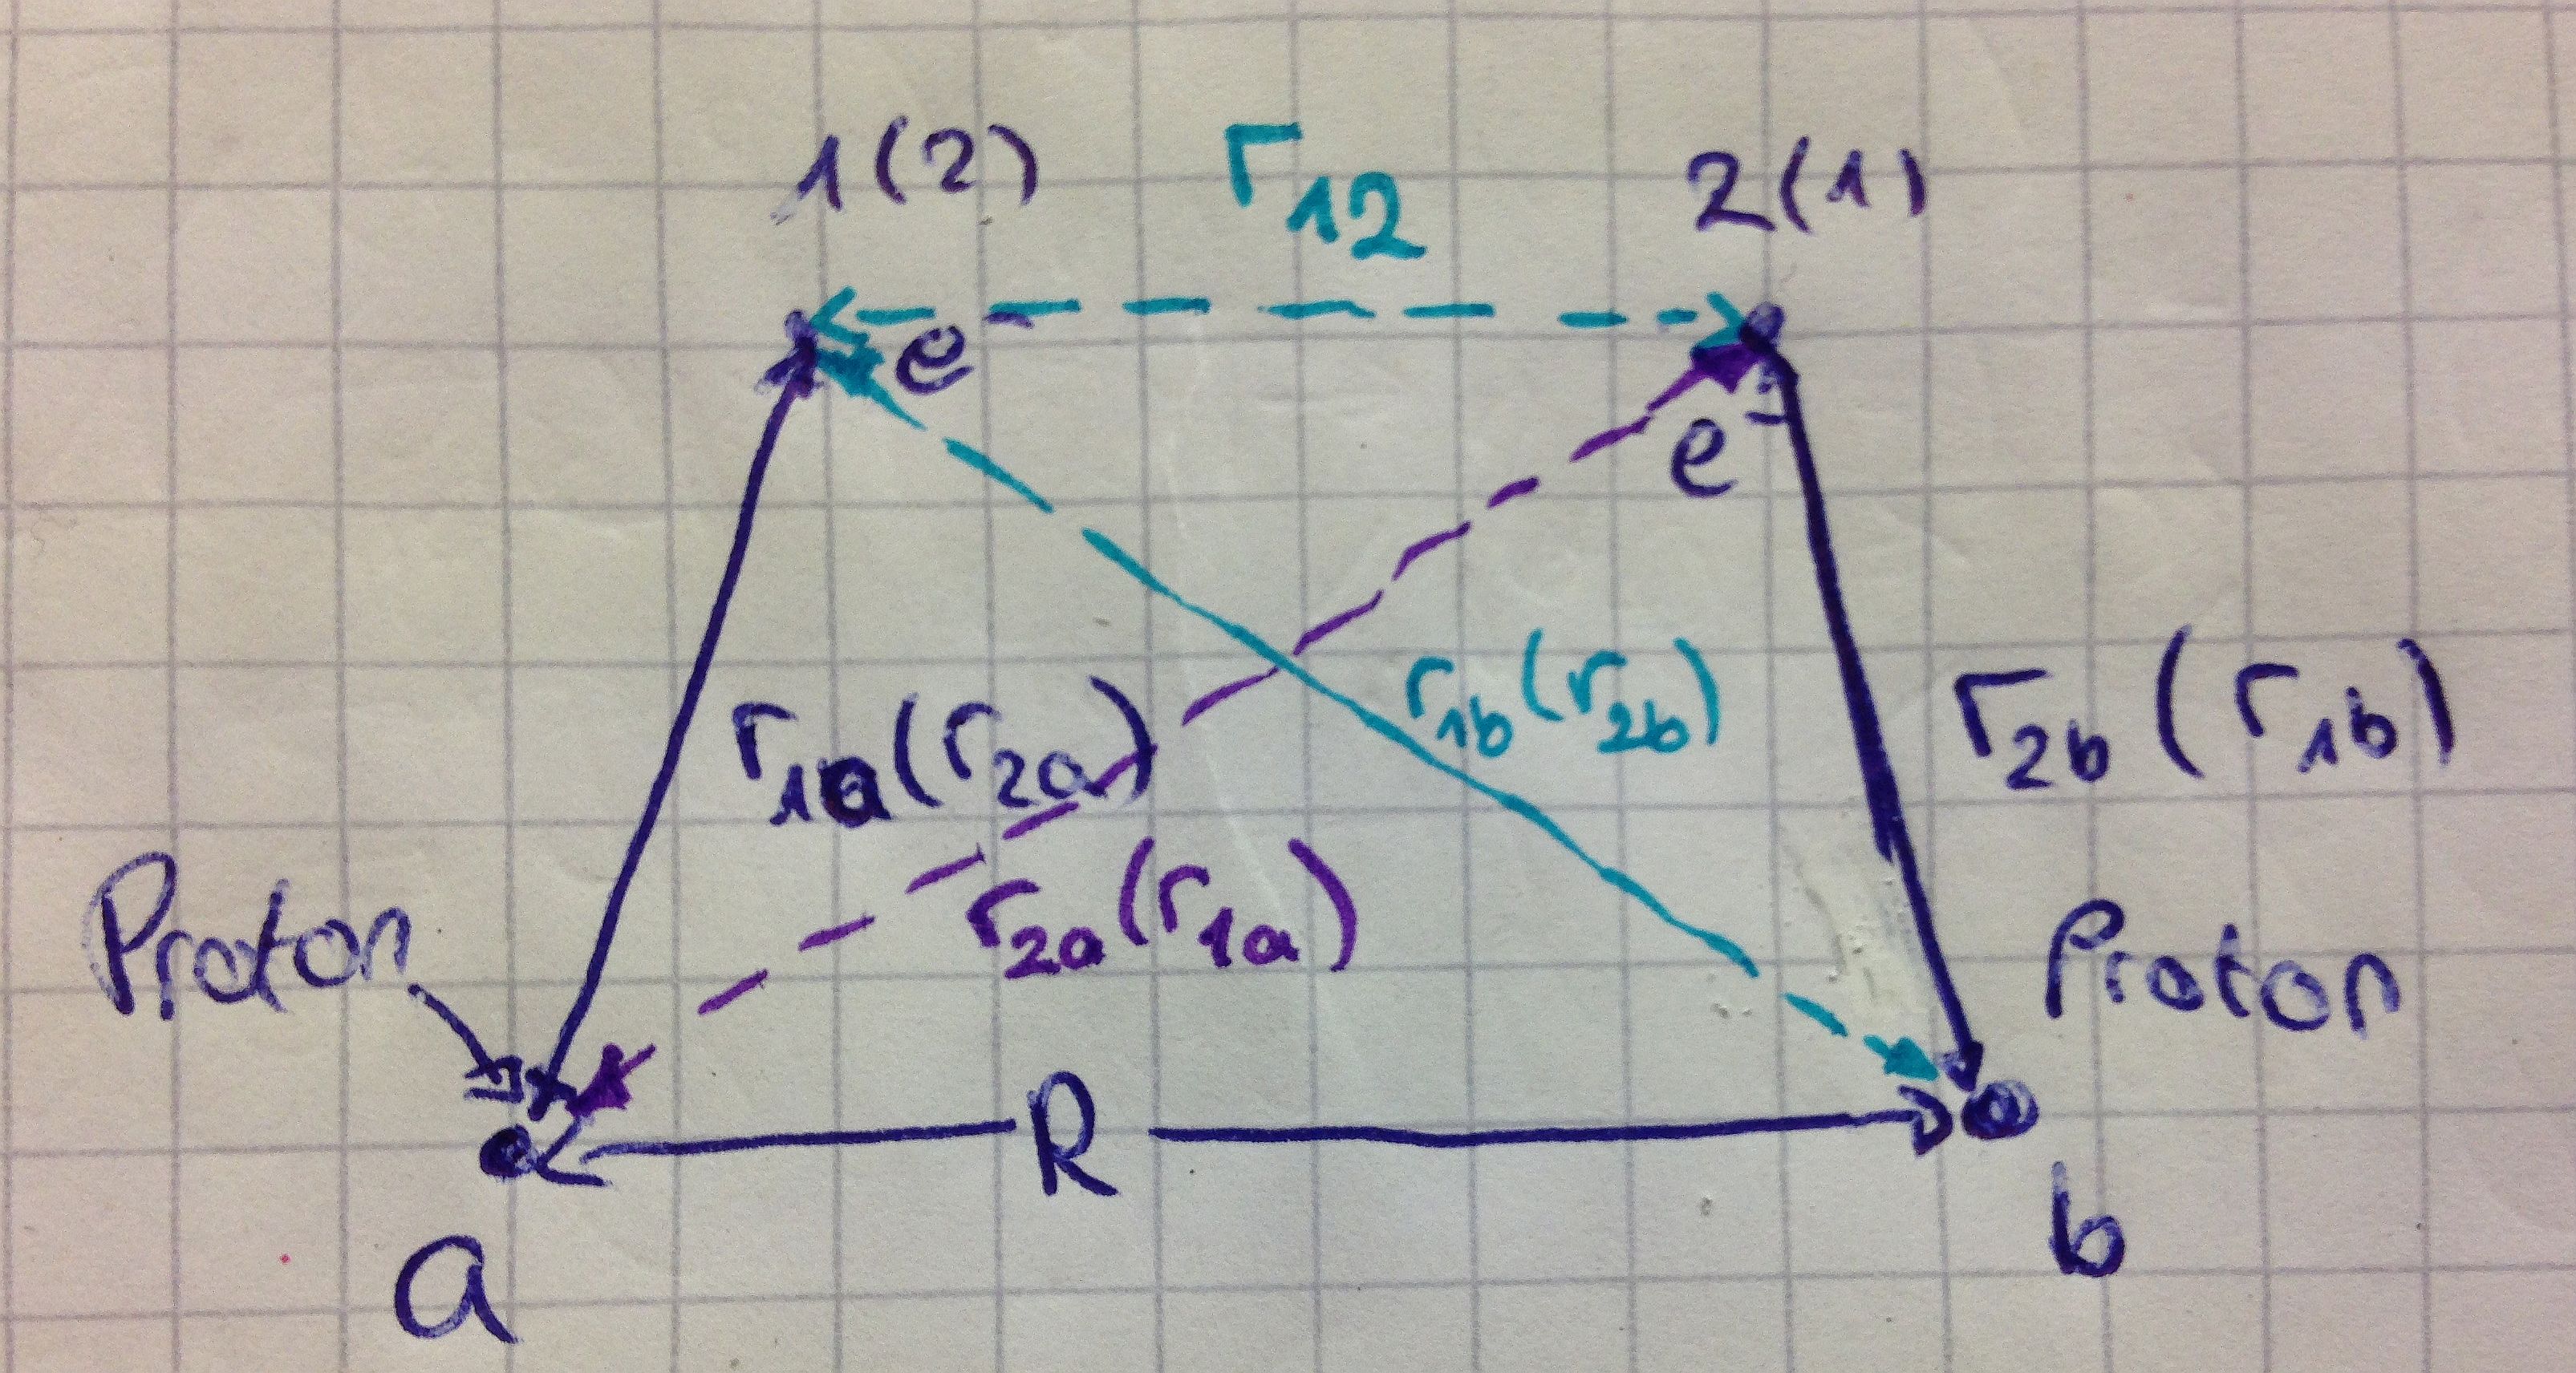 1(2)
r12
2(1)
e-
e-
r1b(r2b)
r2b(r1b)
r1a(r2a)
r2a(r1a)
Proton
Proton
R
a
b